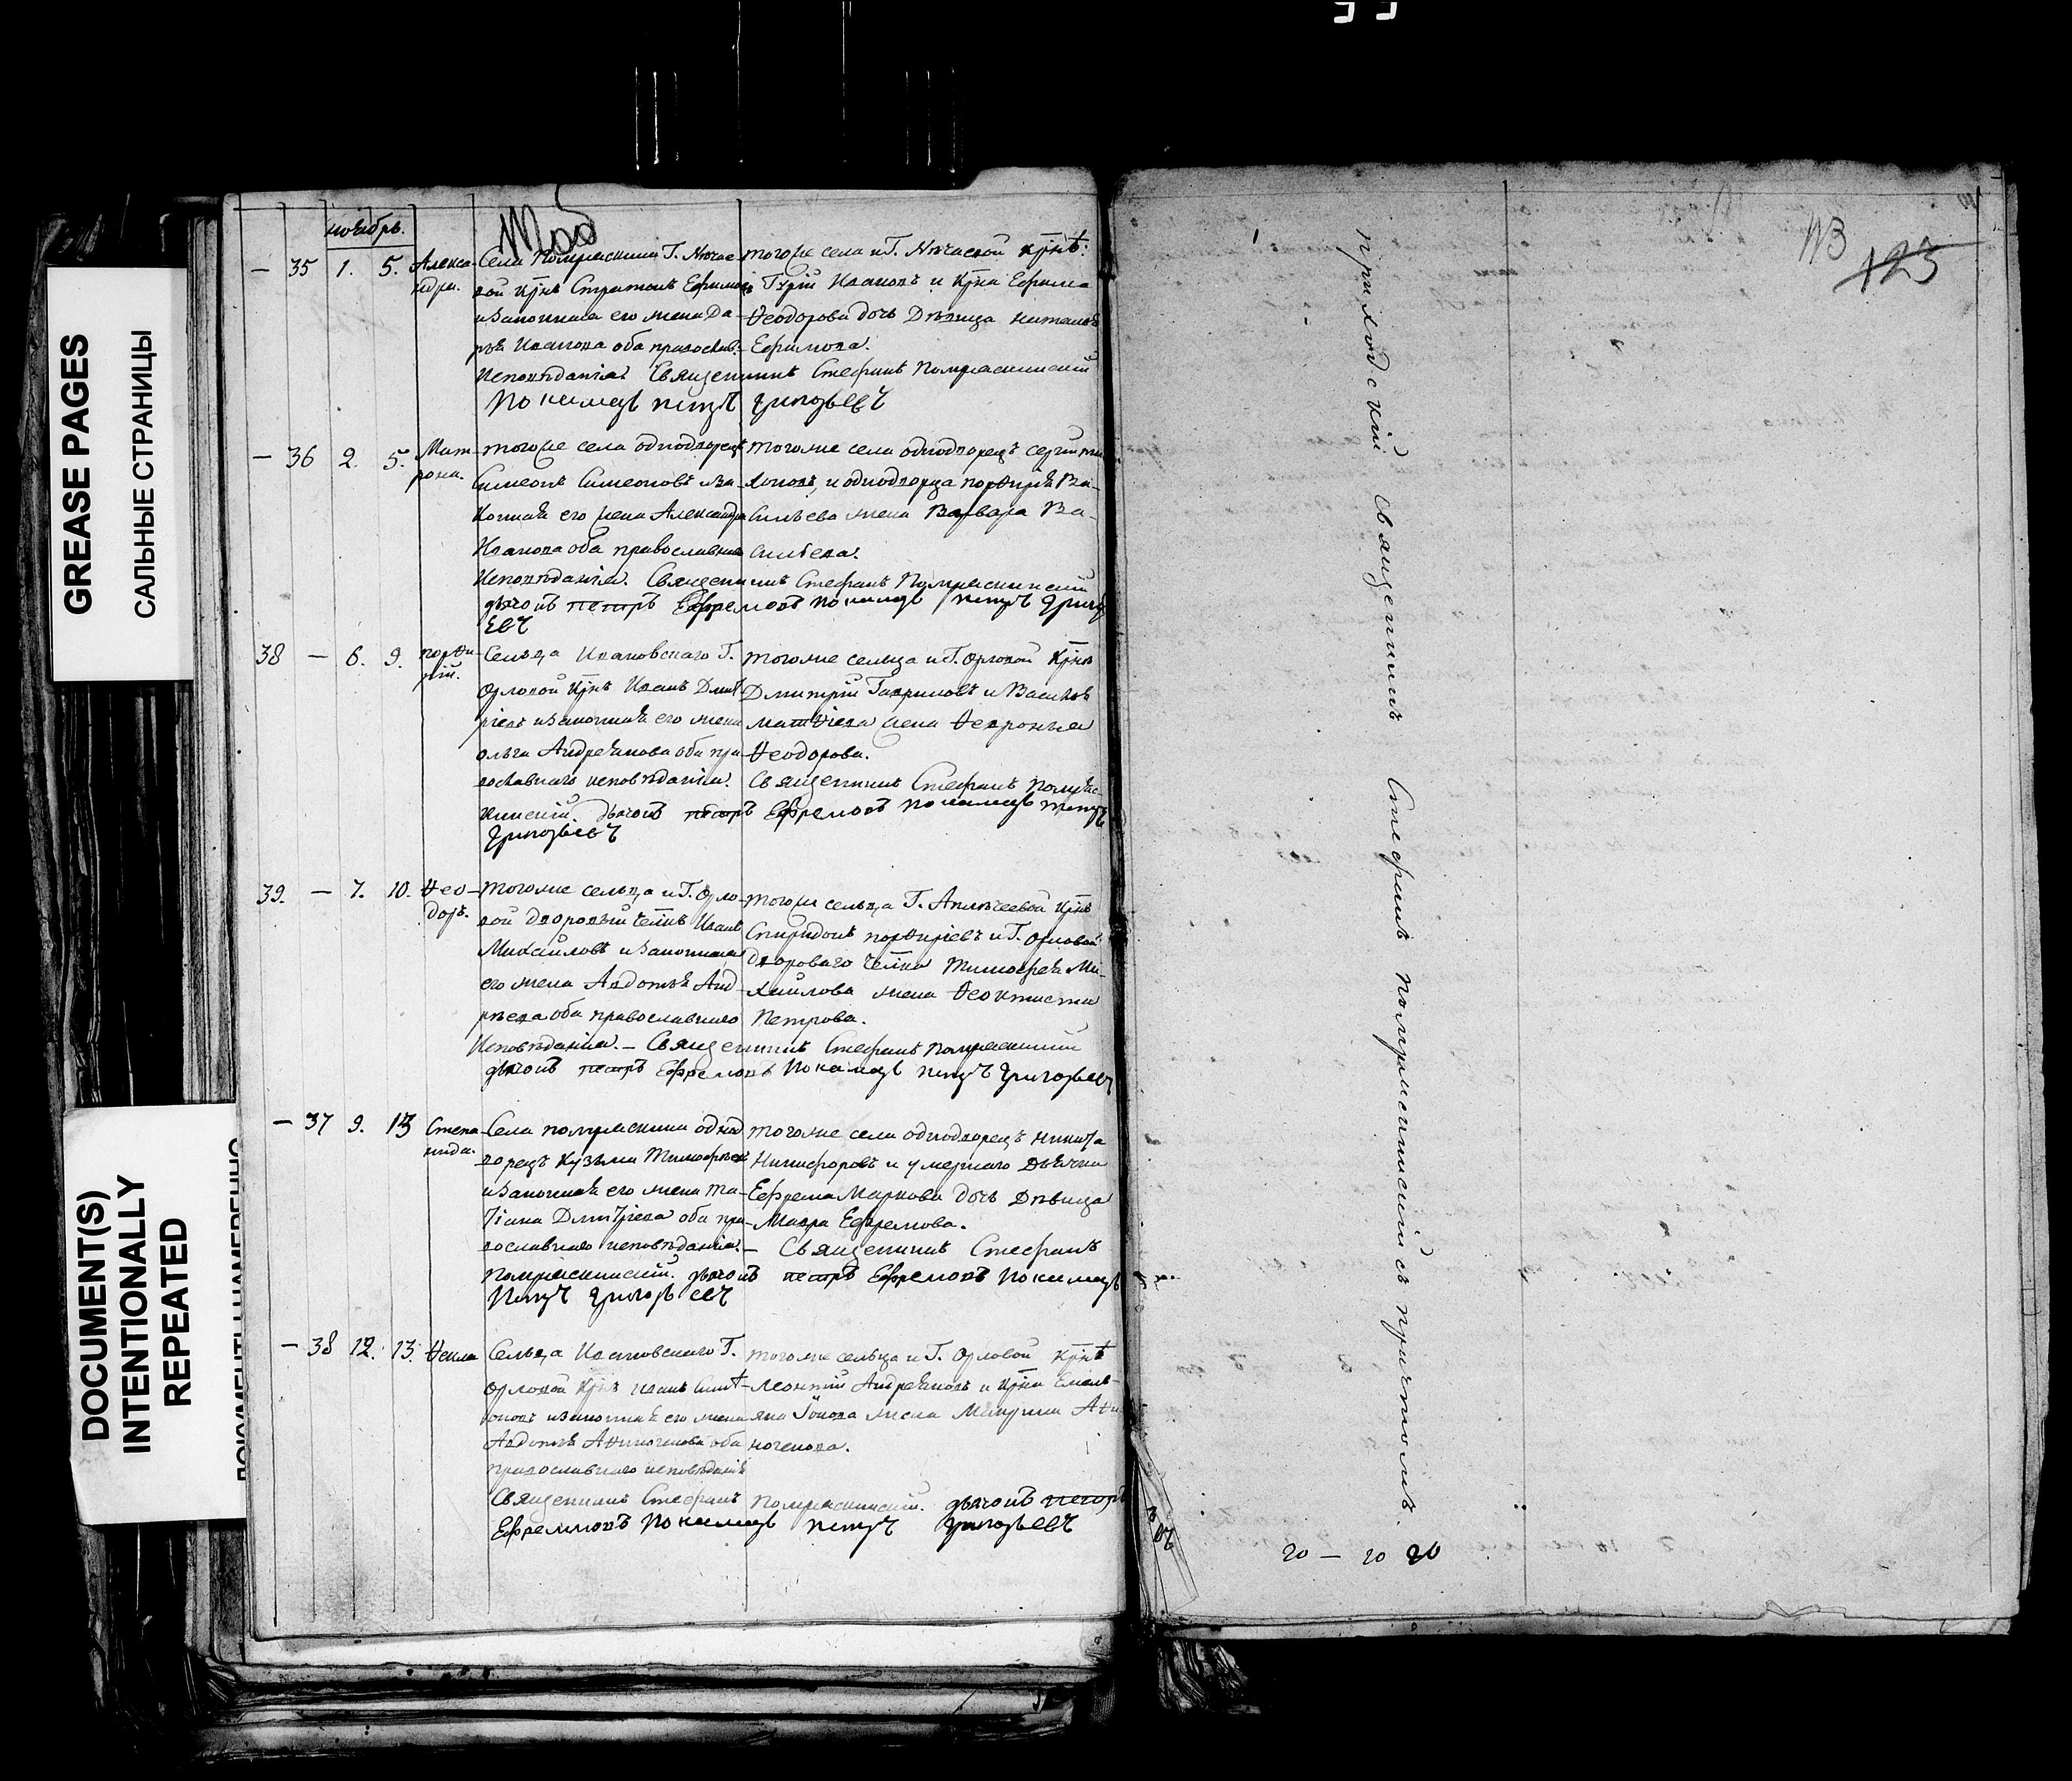 GREASE PAGES
САЛЬНЫЕ СТРАНИЦЫ
DOCUMENT(S)
INTENTIONALLY
REPEATED
ноябрь.
— 35 1. 5. Алекса-
ндра.
Села
крн̄ъ Стратонъ Ефимовъ
и законная его жена Да-
рья Иванова оба православ.
исповѣданія
тогоже села и Г.
Гурій Ивановъ и крн̄а Ефима
Ѳеодорова дочь Дѣвица
Ефимова.
Священникъ Стефанъ
пономарь петръ григорьевъ
— 36 2. 5. Мат-
рона.
тогоже села однодворецъ
Симеонъ Симеоновъ и за-
конная его жена Александра
Иванова оба православнаго
исповѣданія.
тогоже села однодворецъ сергій
и однодворца порѳирія Ва-
сильева жена Варвара Ва-
сильева.
Священникъ Стефанъ
дьячокъ петръ Ефремовъ пономарь петръ григорь
евъ
38 — 6. 9. порѳи-
рій.
Сельца Ивановскаго Г.
Орловой крн̄ъ Иванъ Дмит
ріевъ и законная его жена
ольга Андреянова оба пра
вославнаго исповѣданія.
тогоже сельца и Г. Орловой крн̄ъ
Дмитрій Гавриловъ и Василья
матѳіева жена Ѳевронья
Ѳеодорова.
Священникъ Стефанъ
дьячокъ петръ Ефремовъ пономарь петръ
григорьевъ
39. — 7. 10. Ѳео-
доръ.
тогоже сельца и Г. Орло-
вой дворовый челн̄ъ Иванъ
Михайловъ и законная
его жена Авдотья Анд
рѣева оба православнаго
исповѣданія. —
тогоже сельца Г. крн̄ъ
Спиридонъ порѳиріевъ и Г. Орловой
двороваго челн̄а Тимофея Ми-
хайлова жена Ѳеоктиста
Петрова.
Священникъ Стефанъ
дьячокъ петръ Ефремовъ пономарь петръ григорьевъ
— 37 9. 13 Степа-
нида.
Села однод
ворецъ Кузьма Тимофѣевъ
и законная его жена Та-
тіана Дмитріева оба пра-
вославнаго исповѣданія. —
тогоже села однодворецъ никита
Никифоровъ и умершаго Дьячка
Ефрема Маркова дочь Дѣвица
Мавра Ефремова.
Священникъ Стефанъ
дьячокъ петръ Ефремовъ пономарь
петръ григорьевъ
— 38 12. 13. Ѳекла
Сельца Ивановскаго Г.
Орловой крн̄ъ иванъ
и законная его жена
Авдотья оба
православнаго исповѣданія
тогоже сельца и Г. Орловой крн̄ъ
Леонтій Андреяновъ и крн̄а Емель-
яна жена
Священникъ Стефанъ дьячокъ петръ
Ефремовъ пономарь петръ григорьевъ
113
123
приходскій священникъ Стефанъ съ причтомъ.
20 — 20 20